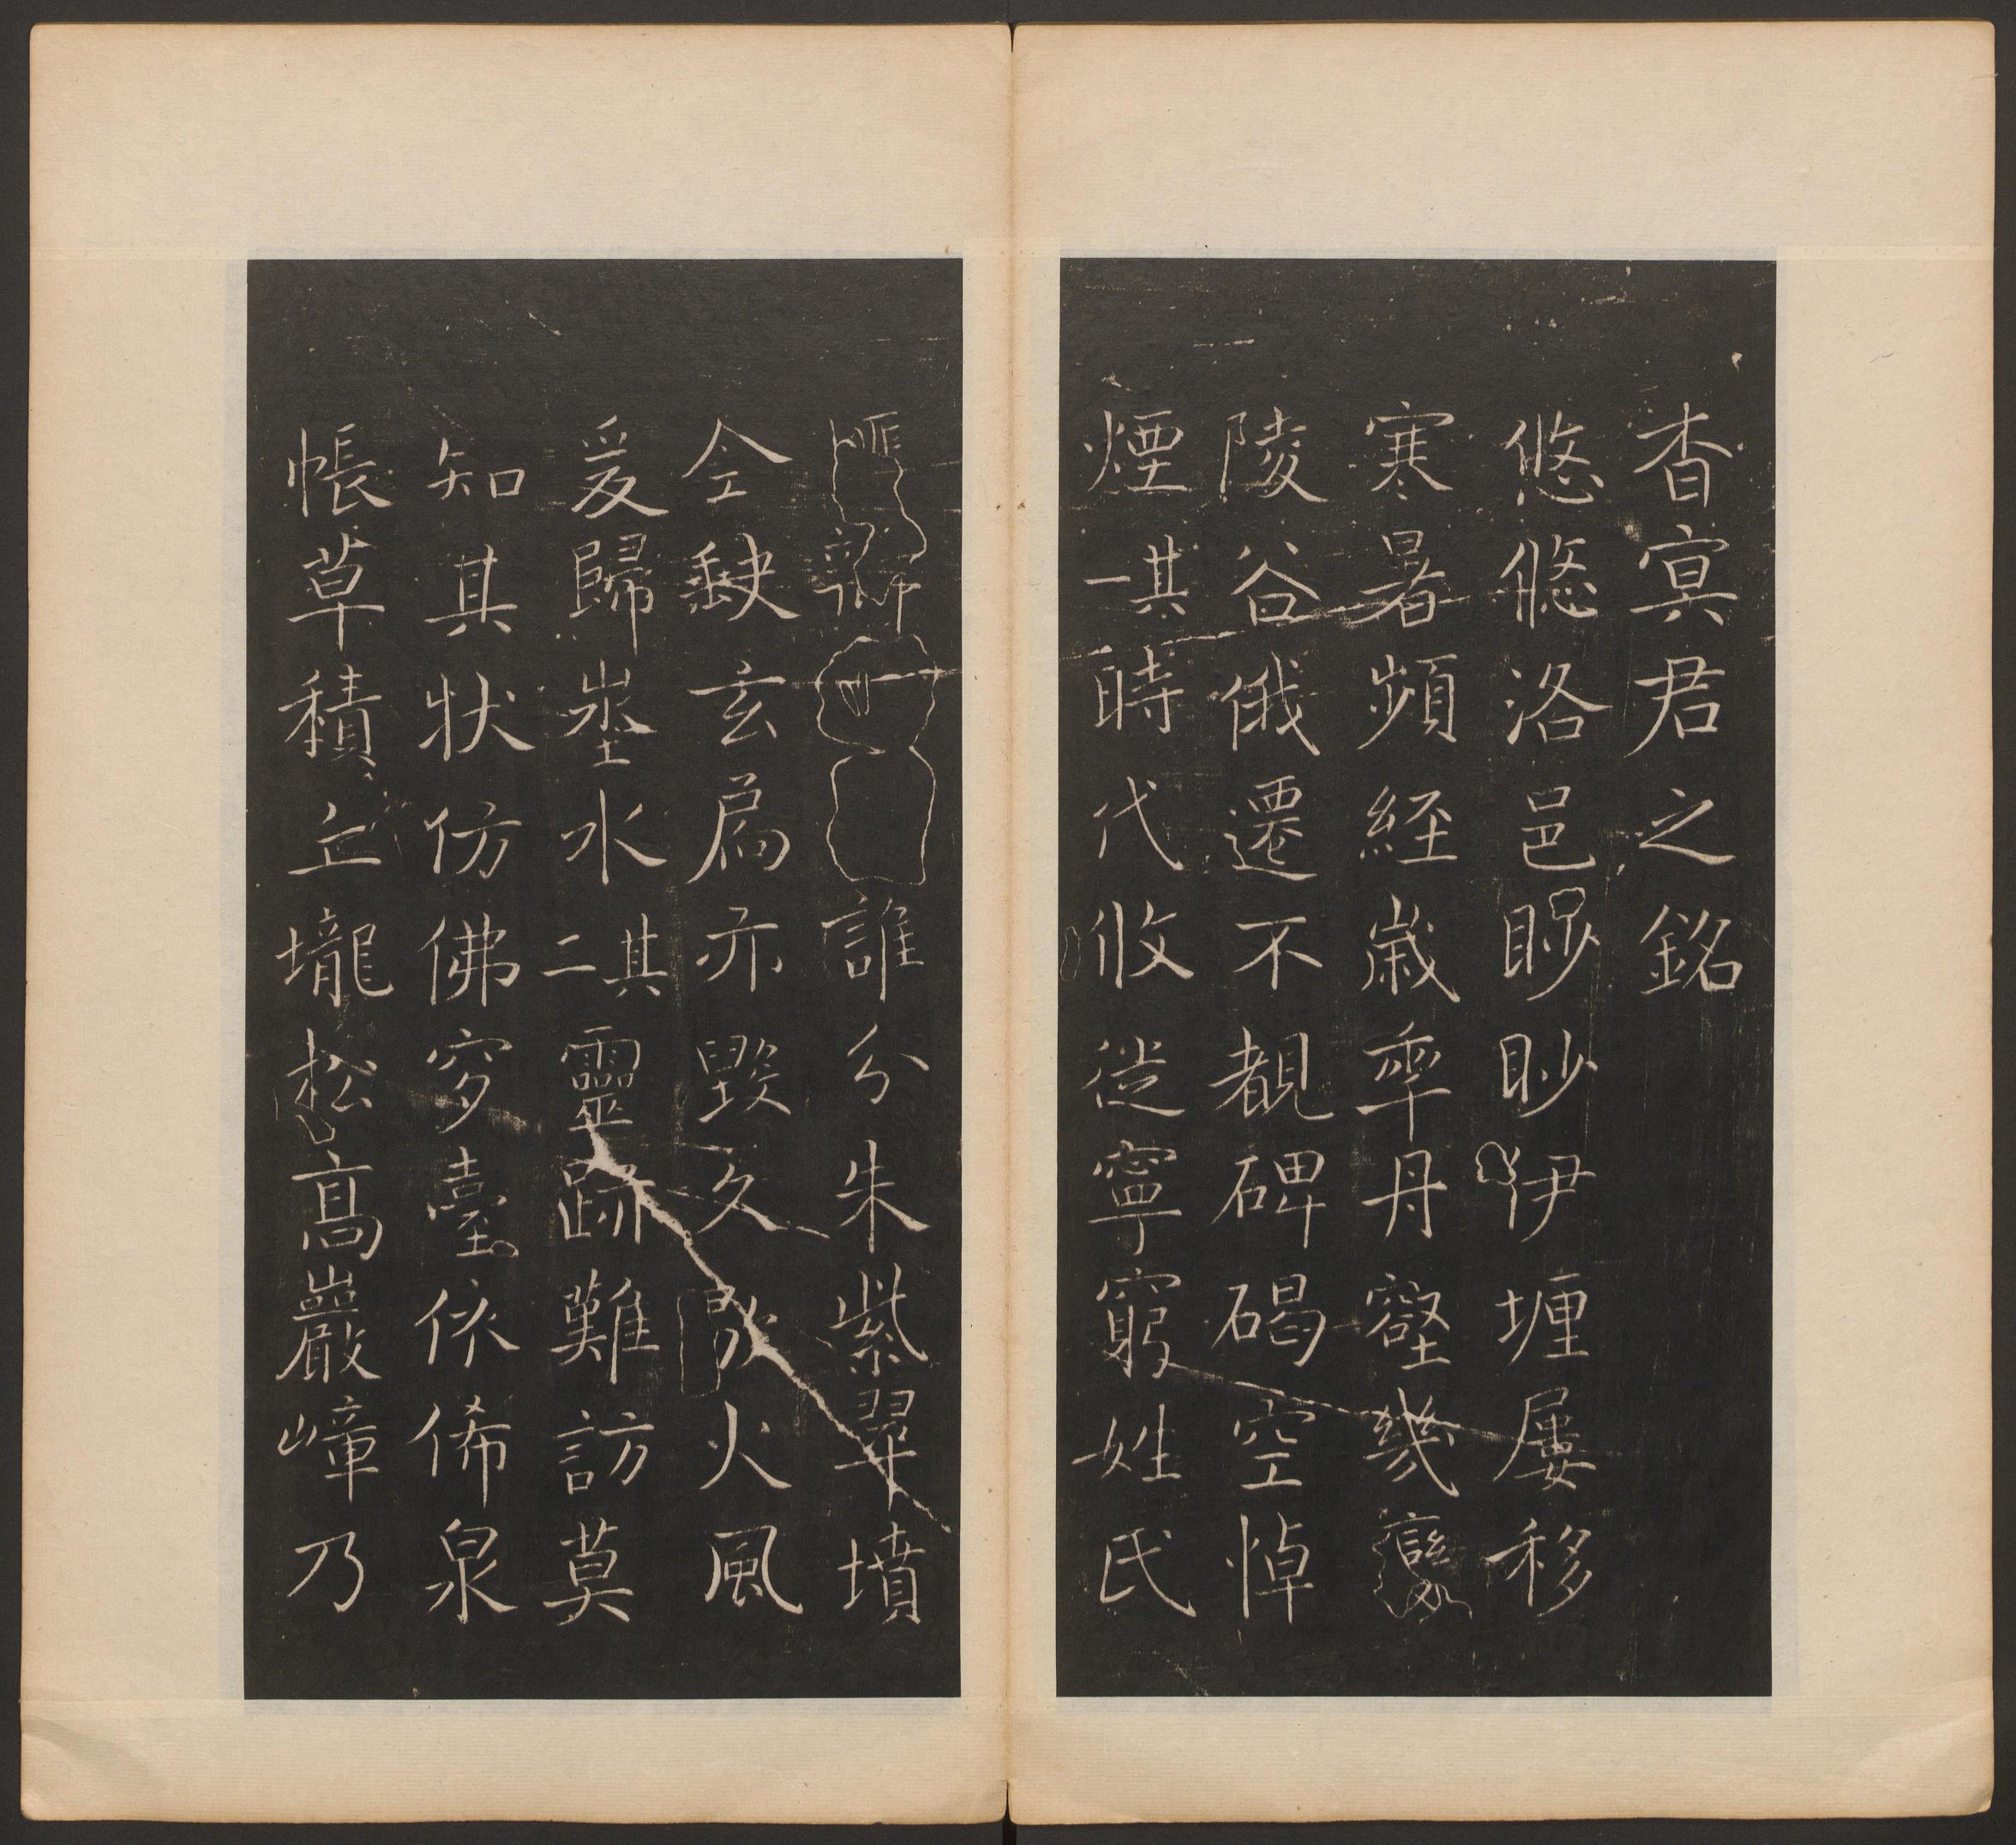 杳冥君之銘
悠悠洛邑眇眇伊壥屢移
寒暑頻經歲年丹壑幾變
陵谷俄遷不覩碑碣空悼
煙其一時代攸徙寧窮姓氏
誰分朱紫翠墳
全缺玄扃亦毀久火風
爰歸埊水其二靈跡難訪莫
知其狀仿佛穸臺依俙泉
帳草積丘壠松高巖嶂乃